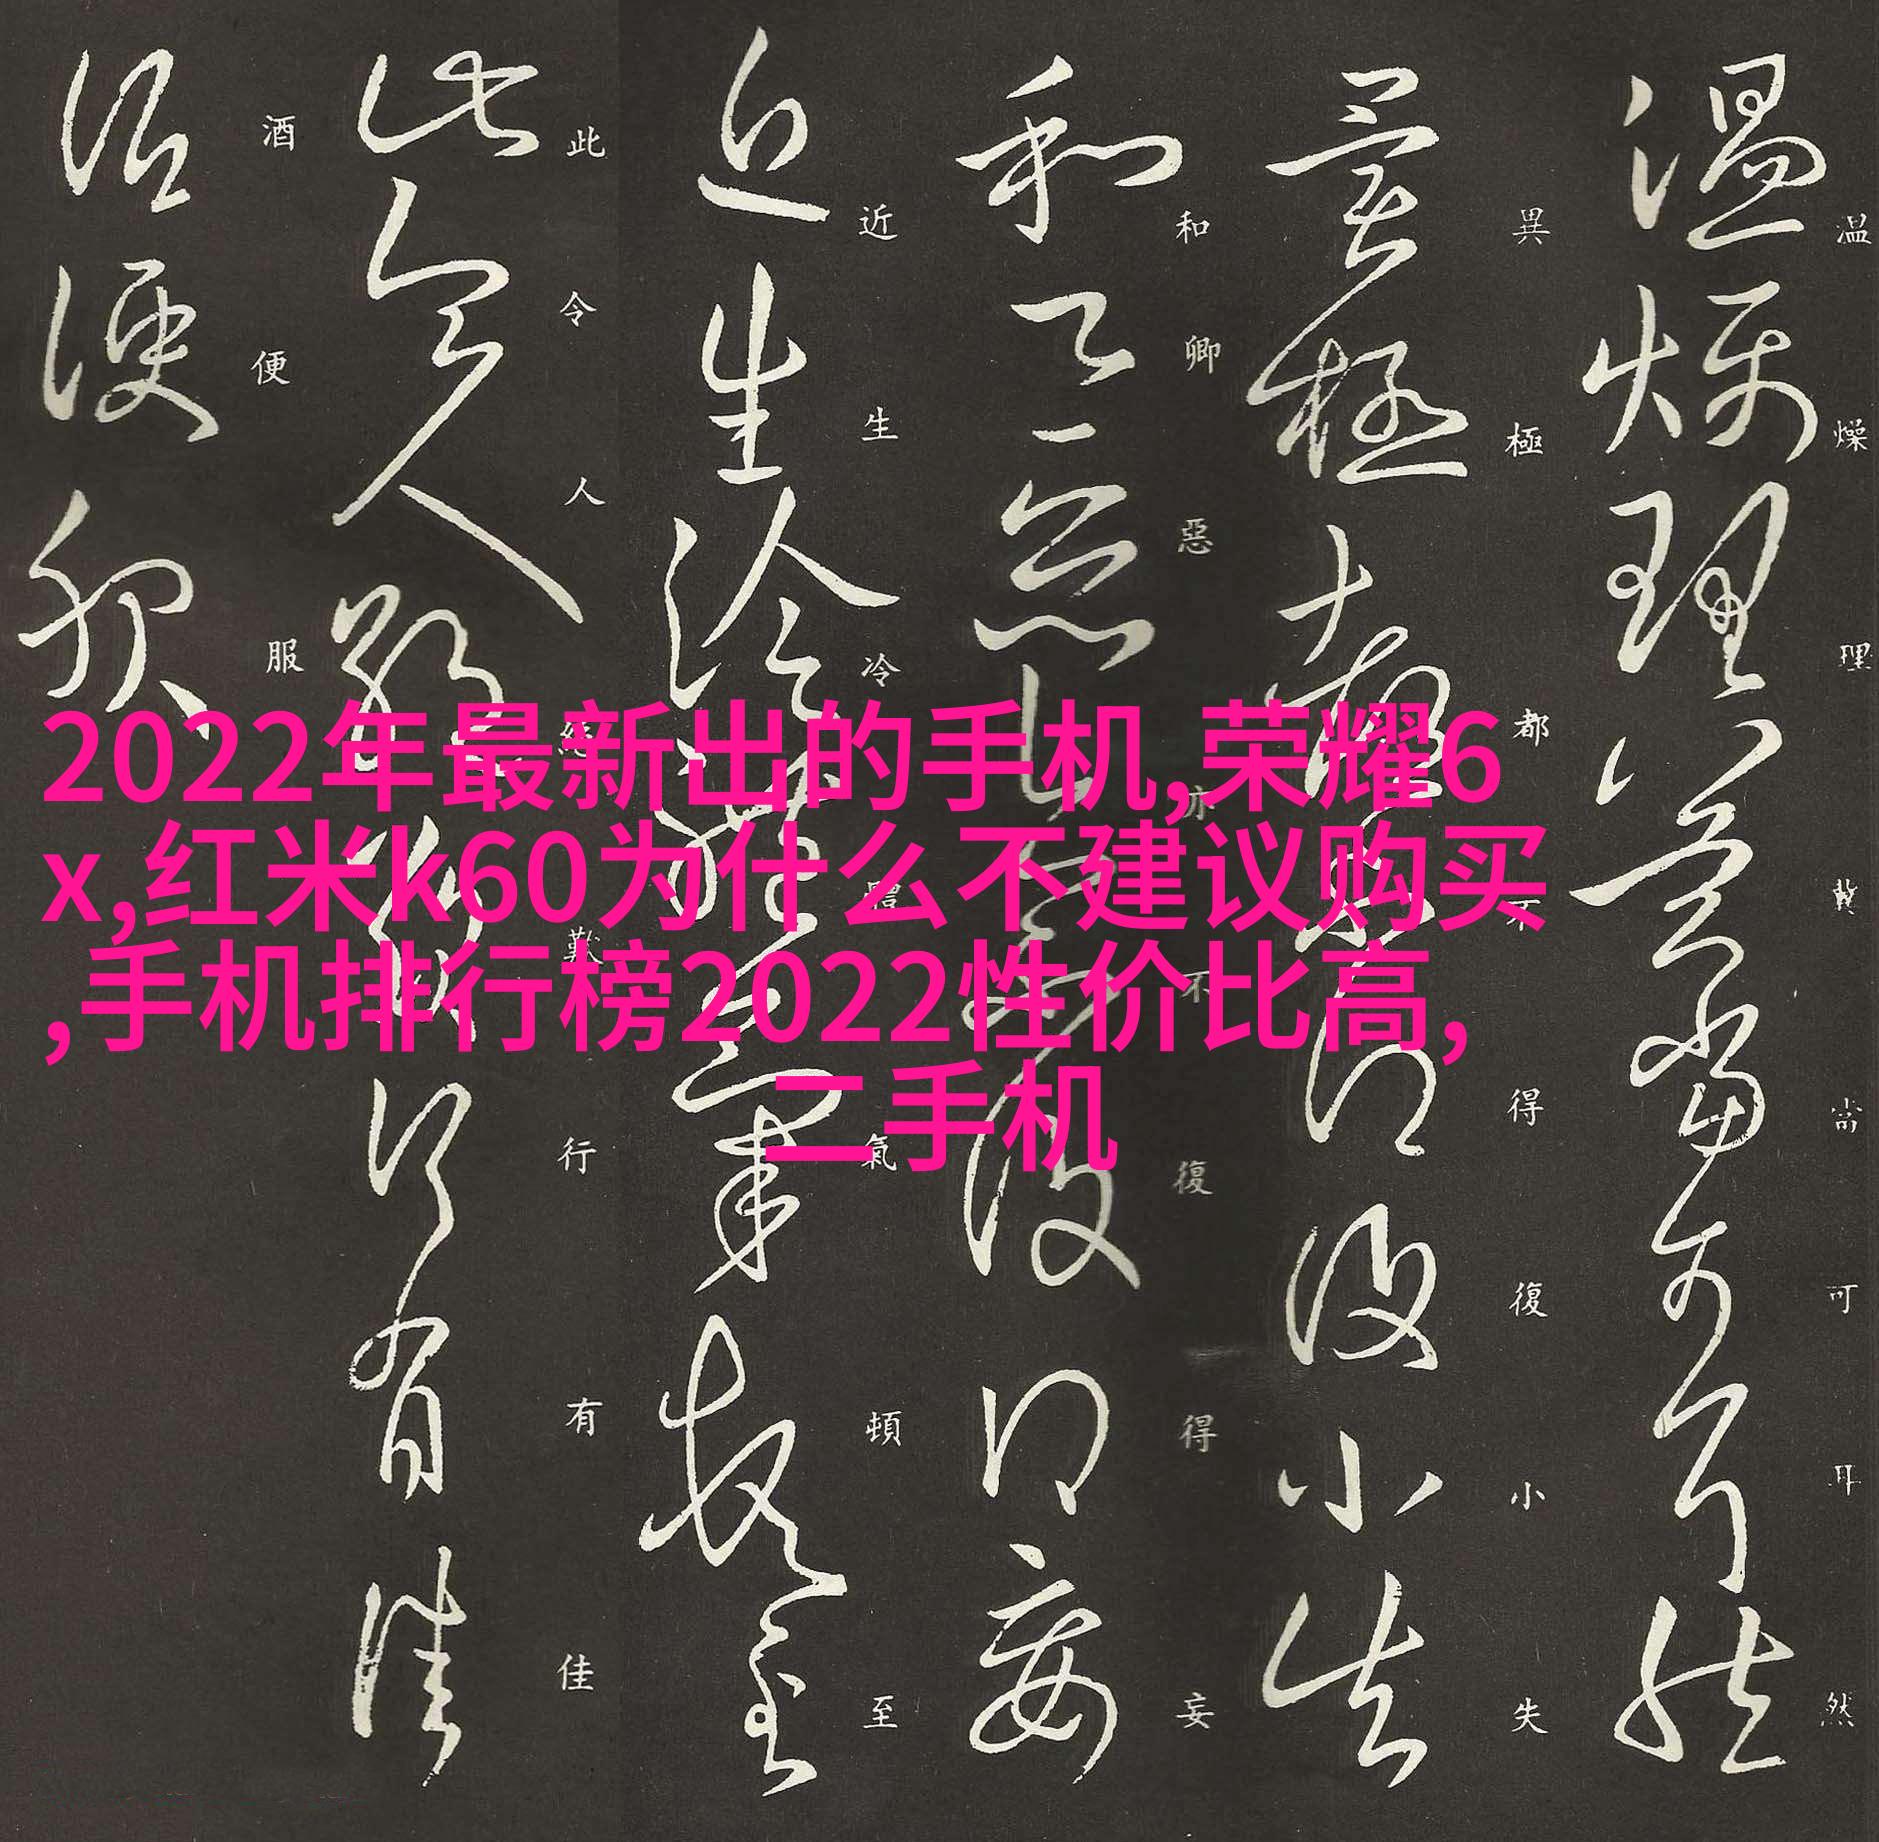 2022年最新出的手机,荣耀6
x,红米k60为什么不建议购买
,手机排行榜2022性价比高,
二手机
温燥理冀當可耳然
異極都不得復小失
和卿惡亦不復得妄
近生冷體氣頓至
此令人行有佳
酒便服